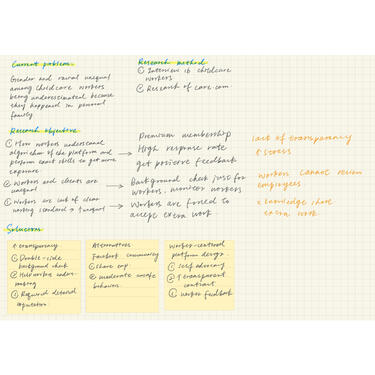 Current problem
Gender and racial unequal
among childcare workers
being underestimated because
they happened in personal
family
Research method
① Interview 16 childcare
workers
② Research of care.com
Research objective
① How workers understand
algorithm of the platform and
perform exact skills to get more
exposure
② Workers and clients are
unequal
③ Workers are lack of clear
working standard → unequal
Premium membership
High response rate
get positive feedback
Background check just for
workers. monitor workers
Workers are forced to
accept extra work
lack of transparency
↑ stress
workers cannot review
employers
knowledge share
extra work
Solutions
↑ transparency
① Double-side
background check
② Help worker
making
③ Required detailed
Alternatives
Facebook community
① Share exp.
② moderate unsafe
behaviors.
Worker-centered
platform design.
① self advocacy
② Transparent
contract
③ worker feedback